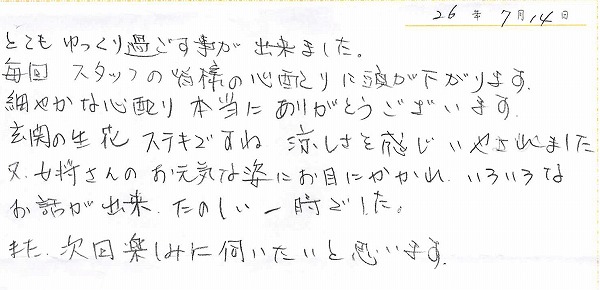 26年7月14日
とてもゆっくり過ごす事が出来ました。
毎回 スタッフの皆様の心配りに頭が下がります.
細やかな心配り 本当にありがとうございます.
玄関の生花 ステキですね 涼しさを感じ いやされました
又、女将さんのお元気な姿にお目にかかれ、いろいろな
お話が出来、たのしい一時でした。
また、次回楽しみに伺いたいと思います.